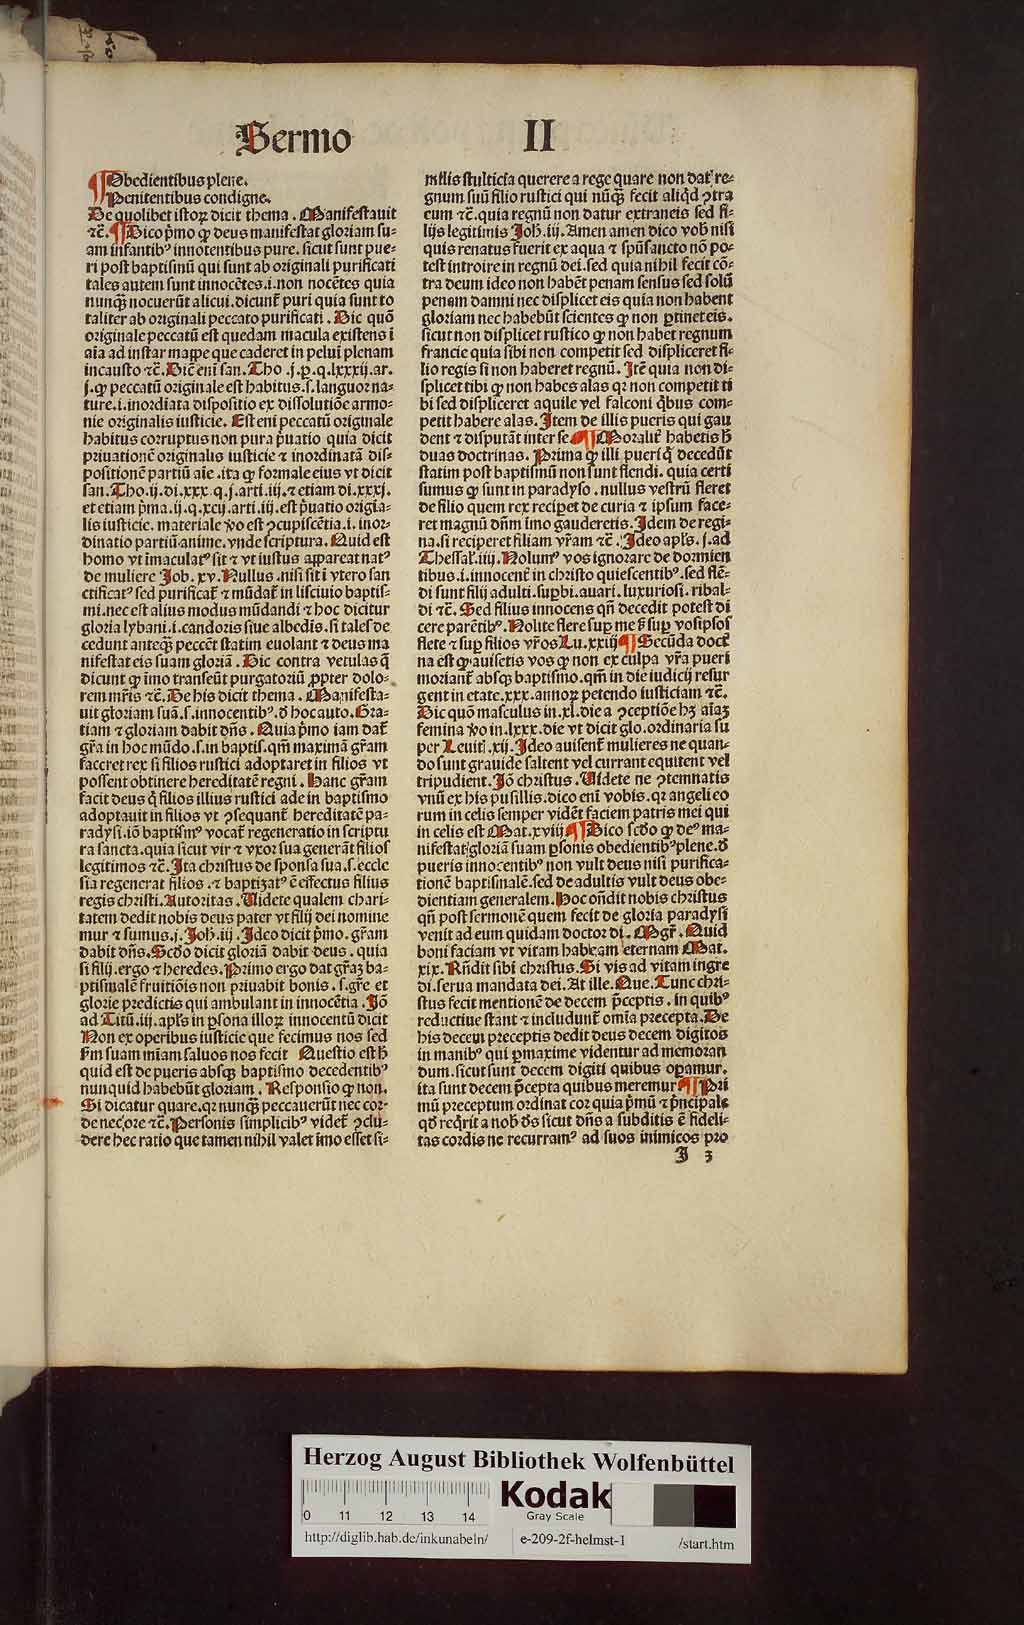 Sermo II
¶ Obedientibus plene.
Penitentibus condigne.
De quolibet istoꝝ dicit thema. Manifestauit
⁊cͣ. ¶ Dico pͥmo ꝙ deus manifestat gloriam su-
am infantibꝰ innocentibus pure. sicut sunt pue-
ri post baptismū qui sunt ab originali purificati
tales autem sunt innocētes .i. non nocētes quia
nunqȝ nocuerūt alicui. dicunt᷑ puri quia sunt to
taliter ab originali peccato purificati. Dic quō
originale peccatū est quedam macula existens ī
aīa ad instar mappe que caderet in peluī plenam
incausto ⁊c̄. Dic̄ eni san. Tho .j. p. q. lxxxij. ar.
j. ꝙ peccatū originale est habitus .s. languor na-
ture .i. inordiata dispositio ex dissolutiōe armo-
nie originalis iusticie. Est eni peccatū originale
habitus corruptus non pura pͥuatio quia dicit
priuationē originalis iusticie ⁊ inordinatā dis-
positionē partiū aīe. ita ꝙ formale eius vt dicit
san. Tho. ij. di. xxx. q. j. arti. iij. ⁊ etiam di. xxxj.
et etiam pͥma. ij. q. xcij. arti. iij. est pͥuatio origīa-
lis iusticie. materiale ꝟo est ꝯcupiscētia .i. inor-
dinatio partiū anime. vnde scriptura. Quid est
homo vt īmaculatꝰ sit ⁊ vt iustus appareat natꝰ
de muliere Job. xv. Nullus. nisi sit ī vtero san
ctificatꝰ sed purificat᷑ ⁊ mūdat᷑ in lisciuio baptis-
mi. nec est alius modus mūdandi ⁊ hoc dicitur
gloria lybani .i. candoris siue albedis. si tales de
cedunt anteqȝ peccēt statim euolant ⁊ deus ma
nifestat eis suam gloriā. Dic contra vetulas q̄
dicunt ꝙ īmo transeūt purgatoriū ꝓpter dolo-
rem mrīs ⁊c̄. De his dicit thema. Manifesta-
uit gloriam suā .s. innocentibꝰ. ð hoc auto. Gra-
tiam ⁊ gloriam dabit dn̄s. Quia pͥmo iam dat᷑
gr̄a in hoc mūdo .s. in baptis. qm̄ maximā gr̄am
faceret rex si filios rustici adoptaret in filios vt
possent obtinere hereditatē regni. Hanc gr̄am
facit deus q̄ filios illius rustici ade in baptismo
adoptauit in filios vt ꝯsequant᷑ hereditatē pa-
radysi. iō baptismꝰ vocat᷑ regeneratio in scriptu
ra sancta. quia sicut vir ⁊ vxor sua generāt filios
legitimos ⁊c̄. Ita christus de sponsa sua .s. eccle
sia regenerat filios. ⁊ baptizatꝰ ē effectus filius
regis christi. Autoritas. Uidete qualem chari-
tatem dedit nobis deus pater vt filij dei nomine
mur ⁊ sumus. j. Joh. iij. Ideo dicit pͥmo. gr̄am
dabit dn̄s. Scdo dicit gloriā dabit deus. quia
si filij. ergo ⁊ heredes. Primo ergo dat gr̄aȝ ba-
ptismalē fruitiōis non priuabit bonis .s. gr̄e et
glorie predictis qui ambulant in innocētia. Jō
ad Titū. iij. apl̄s in ꝑsona illoꝝ innocentū dicit
Non ex operibus iusticie que fecimus nos sed
ẜm suam mīam saluos nos fecit Questio est ħ
quid est de pueris absqȝ baptismo decedentibꝰ
nunquid habebūt gloriam. Responsio ꝙ non.
Si dicatur quare. qꝛ nunqȝ peccauerūt nec cor-
de nec ore ⁊c̄. Personis simplicibꝰ videt᷑ ꝯclu-
dere hec ratio que tamen nihil valet īmo esset si-
milis stulticia querere a rege quare non dat re-
gnum suū filio rustici qui nūqȝ fecit aliqd ꝯtra
eum ⁊c̄. quia regnū non datur extraneis sed fi-
lijs legitimis Joh. iij. Amen amen dico vob nisi
quis renatus fuerit ex aqua ⁊ spūsancto nō po-
test introire in regnū dei. sed quia nihil fecit cō-
tra deum ideo non habēt penam sensus sed solū
penam damni nec displicet eis quia non habent
gloriam nec habebūt scientes ꝙ non ꝑtinet eis.
sicut non displicet rustico ꝙ non habet regnum
francie quia sibi non competit sed displiceret fi-
lio regis si non haberet regnū. Itē quia non di-
splicet tibi ꝙ non habes alas qꝛ non competit ti
bi sed displiceret aquile vel falconi qͥbus com-
petit habere alas. Item de illis pueris qui gau
dent ⁊ disputāt inter se ¶ Moralit᷑ habetis ħ
duas doctrinas. Prima ꝙ illi pueri q̄ decedūt
statim post baptismū non sunt flendi. quia certi
sumus ꝙ sunt in paradyso. nullus vestrū fleret
de filio quem rex reciperet de curia ⁊ ipsum face-
ret magnū dn̄m īmo gauderetis. Idem de regi-
na. si reciperet filiam vr̄am ⁊c̄. Ideo apl̄s. j. ad
Thessal. iiij. Nolumꝰ vos ignorare de dormien
tibus .i. innocent᷑ in christo quiescentibꝰ. sed flē-
di sunt filij adulti. suꝑbi. auari. luxuriosi. ribal-
di ⁊c̄. Sed filius innocens qn̄ decedit potest di
cere parētibꝰ. Nolite flere suꝑ me ẜ suꝑ vosipsos
flete ⁊ suꝑ filios vr̄os Lu. xxiij ¶ Secūda doct᷑
na est ꝙ auisetis vos ꝙ non ex culpa vr̄a pueri
moriant᷑ absqȝ baptismo. qm̄ in die iudicij resur
gent in etate. xxx. annoꝝ petendo iusticiam ⁊c̄.
Dic quō masculus in. xl. die a ꝯceptiōe hȝ aīaȝ
femina ꝟo in. lxxx. die vt dicit glo. ordinaria su
per Leuiti. xij. Ideo auisent᷑ mulieres ne quan-
do sunt grauide saltent vel currant equitent vel
tripudient. Jō christus. Uidete ne ꝯtemnatis
vnū ex his pusillis. dico enī vobis. qꝛ angeli eo
rum in celis semper vidēt faciem patris mei qui
in celis est Mat. xviij ¶ Dico scdo ꝙ deꝰ ma-
nifestat gloriā suam ꝑsonis obedientibꝰ plene. ð
pueris innocentibꝰ non vult deus nisi purifica-
tionē baptismalē. sed de adultis vult deus obe-
dientiam generalem. Hoc on̄dit nobis christus
qn̄ post sermonē quem fecit de gloria paradysi
venit ad eum quidam doctor di. Mgr̄. Quid
boni faciam vt vitam habeam eternam Mat.
xix. Rn̄dit sibi christus. Si vis ad vitam ingre
di. serua mandata dei. At ille. Que. Tunc chri-
stus fecit mentionē de decem p̄ceptis. in quibꝰ
reductiue stant ⁊ includunt᷑ omīa precepta. De
his decem preceptis dedit deus decem digitos
in manibꝰ qui ꝑmaxime videntur ad memoran
dum. sicut sunt decem digiti quibus oꝑamur.
ita sunt decem p̄cepta quibus meremur ¶ Pri
mū preceptum ordinat cor quia pͥmū ⁊ pͥncipale
qd reqͥrit a nob ds̄ sicut dn̄s a subditis ē fideli-
tas cordis ne recurramꝰ ad suos inimicos pro
J 3
Herzog August Bibliothek Wolfenbüttel
0 11 12 13 14
Kodak
Gray Scale
http://diglib.hab.de/inkunabeln/ e-209-2f-helmst-1 /start.htm